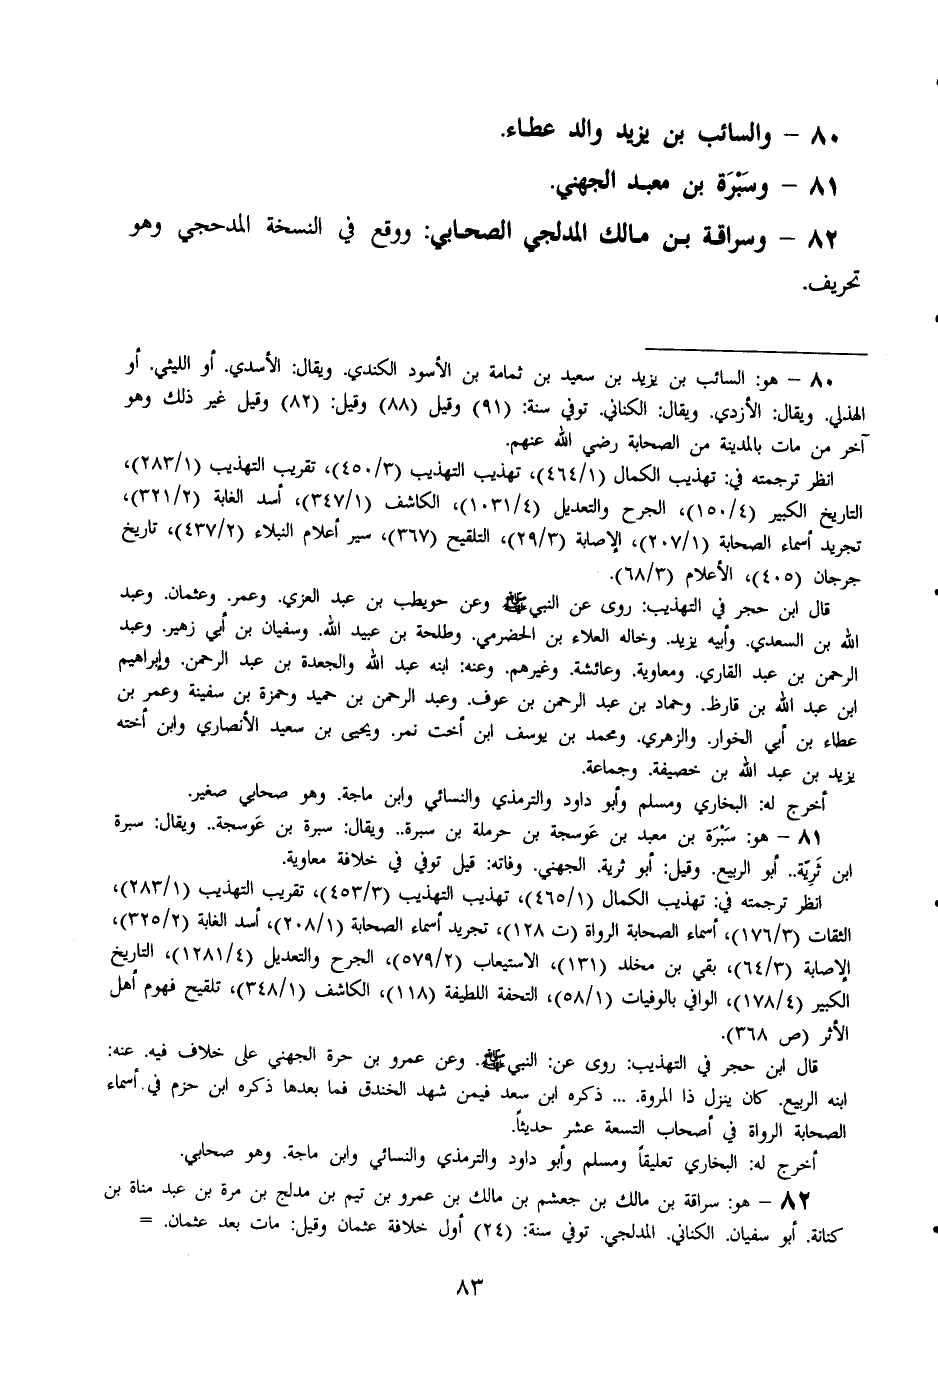 ٨٠ - والسائب بن يزيد والد عطاء.
٨١ - وسَبْرَة بن معبد الجهني.
٨٢ - وسراقة بن مالك المدلجي الصحابي: ووقع في النسخة المدحجي وهو
تحريف.
٨٠ - هو: السائب بن يزيد بن سعيد بن ثمامة بن الأسود الكندي. ويقال: الأسدي. أو الليثي. أو
الهذلي. ويقال: الأزدي. ويقال: الكناني. توفي سنة: (٩١) وقيل (٨٨) وقيل: (٨٢) وقيل غير ذلك وهو
آخر من مات بالمدينة من الصحابة رضي الله عنهم.
انظر ترجمته في: تهذيب الكمال (٤٦٤/١)، تهذيب التهذيب (٤٥٠/٣)، تقريب التهذيب (٢٨٣/١)،
التاريخ الكبير (١٥٠/٤)، الجرح والتعديل (١٠٣١/٤)، الكاشف (٣٤٧/١)، أسد الغابة (٣٢١/٢)،
تجريد أسماء الصحابة (٢٠٧/١)، الإصابة (٢٩/٣)، التلقيح (٣٦٧)، سير أعلام النبلاء (٤٣٧/٢)، تاريخ
جرجان (٤٠٥)، الأعلام (٦٨/٣).
قال ابن حجر في التهذيب: روى عن النبي ﷺ وعن حويطب بن عبد العزي. وعمر. وعثمان. وعبد
الله بن السعدي. وأبيه يزيد. وخاله العلاء بن الحضرمي. وطلحة بن عبيد الله. وسفيان بن أبي زهير. وعبد
الرحمن بن عبد القاري. ومعاوية. وعائشة. وغيرهم. وعنه: ابنه عبد الله والجعدة بن عبد الرحمن. وإبراهيم
ابن عبد الله بن قارظ. وحماد بن عبد الرحمن بن عوف. وعبد الرحمن بن حميد وحمزة بن سفينة وعمر بن
عطاء بن أبي الخوار. والزهري. ومحمد بن يوسف ابن أخت نمر. ويحيى بن سعيد الأنصاري وابن أخته
يزيد بن عبد الله بن خصيفة. وجماعة.
أخرج له: البخاري ومسلم وأبو داود والترمذي والنسائي وابن ماجة. وهو صحابي صغير.
٨١ - هو: سَبْرَة بن معبد بن عَوسجة بن حرملة بن سبرة.. ويقال: سبرة بن عَوسجة.. ويقال: سبرة
ابن ثَرِيّة.. أبو الربيع. وقيل: أبو ثرية. الجهني. وفاته: قيل توفي في خلافة معاوية.
انظر ترجمته في: تهذيب الكمال (٤٦٥/١)، تهذيب التهذيب (٤٥٣/٣)، تقريب التهذيب (٢٨٣/١)،
الثقات (١٧٦/٣)، أسماء الصحابة الرواة (ت ١٢٨)، تجريد أسماء الصحابة (٢٠٨/١)، أسد الغابة (٣٢٥/٢)،
الإصابة (٦٤/٣)، بقي بن مخلد (١٣١)، الاستيعاب (٥٧٩/٢)، الجرح والتعديل (١٢٨١/٤)، التاريخ
الكبير (١٧٨/٤)، الوافي بالوفيات (٥٨/١)، التحفة اللطيفة (١١٨)، الكاشف (٣٤٨/١)، تلقيح فهوم أهل
الأثر (ص ٣٦٨).
قال ابن حجر في التهذيب: روى عن: النبي ﷺ. وعن عمرو بن حرة الجهني على خلاف فيه. عنه:
ابنه الربيع. كان ينزل ذا المروة. ... ذكره ابن سعد فيمن شهد الخندق فما بعدها ذكره ابن حزم في أسماء
الصحابة الرواة في أصحاب التسعة عشر حديثاً.
أخرج له: البخاري تعليقاً ومسلم وأبو داود والترمذي والنسائي وابن ماجة. وهو صحابي.
٨٢ - هو: سراقة بن مالك بن جعشم بن مالك بن عمرو بن تيم بن مدلج بن مرة بن عبد مناة بن
كنانة. أبو سفيان. الكناني. المدلجي. توفي سنة: (٢٤) أول خلافة عثمان وقيل: مات بعد عثمان. =
٨٣